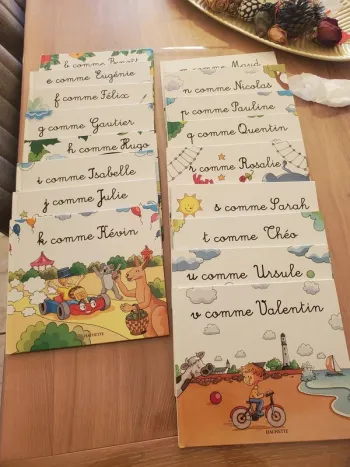 b comme Benoît
e comme Eugénie
f comme Félix
g comme Gautier
h comme Hugo
i comme Isabelle
j comme Julie
k comme Kévin
HACHETTE
m comme Maud
n comme Nicolas
p comme Pauline
q comme Quentin
r comme Rosalie
s comme Sarah
t comme Théo
u comme Ursule
v comme Valentin
HACHETTE